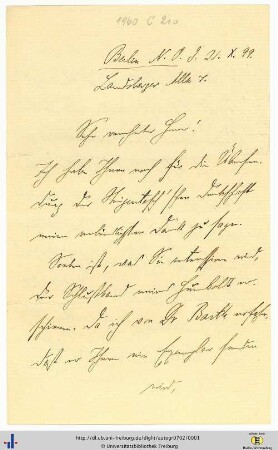 1960 C 210
Berlin N. O. d. 21. X. 99.
Landsberger Allee
Sehr verehrter Herr!
Ich habe Ihnen noch für die Übersen-
dung der
meinen verbindlichsten Dank zu sagen.
Soeben ist, was Sie interessieren wird,
der Schlußband meines Humboldt er-
schienen. Da ich von Dr Barth
daß er Ihnen ein Exemplar senden
wird,
http://dl.ub.uni-freiburg.de/diglit/autogr0702/0001
© Universitätsbibliothek Freiburg